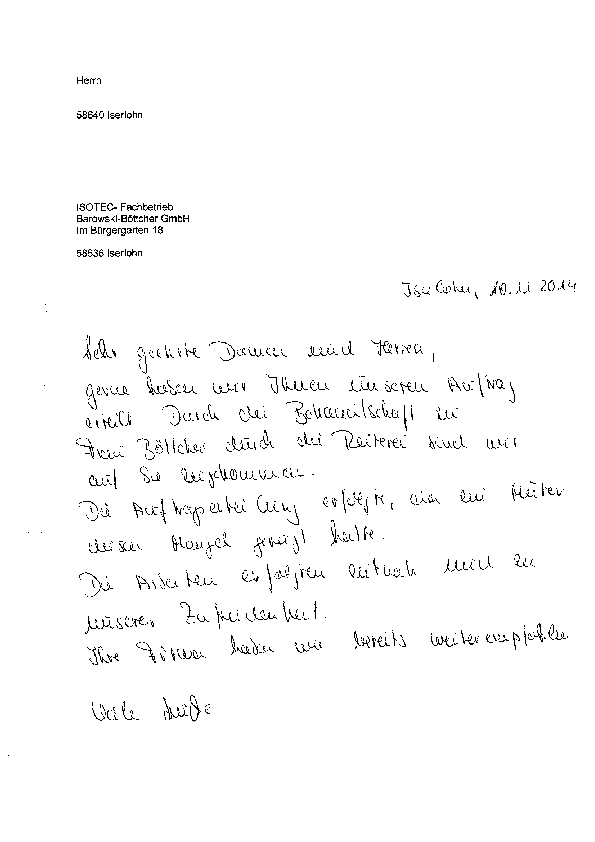 Herrn
58640 Iserlohn
ISOTEC- Fachbetrieb
Barowski-Böttcher GmbH
Im Bürgergarten 18
58636 Iserlohn
Iserlohn, 10.11.2014
Sehr geehrte Damen und Herren,
gerne haben wir Ihnen unseren Auftrag
erteilt. Durch die Bekanntschaft zu
Frau Böttcher durch die Reiterei sind wir
auf Sie gekommen.
Die Auftragserteilung erfolgte, da ein Mieter
diesen Mangel gerügt hatte.
Die Arbeiten erfolgten zeitnah und zu
unserer Zufriedenheit.
Ihre Firma haben wir bereits weiterempfohlen
Viele Grüße